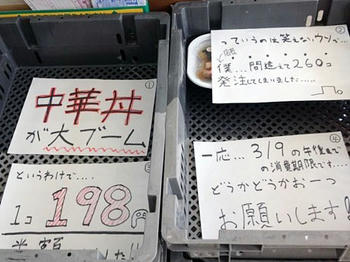 ①
中華丼
が大ブーム
③
というわけで....
1コ 198円
②
っていうのは笑えないウソで...
僕...間違えて260コ
発注してしまいました.....
④
一応... 3/9の午後
の消費期限です...
どうかどうかお一つ
お願いします!